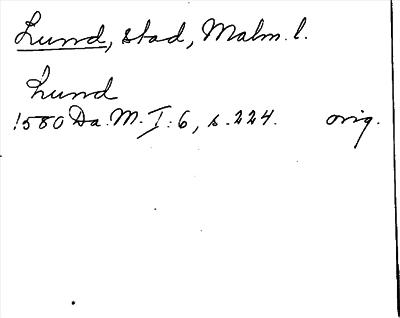 Lund, stad, Malm. l.
Lund
1580 Da. M. I: 6, s. 224. orig.